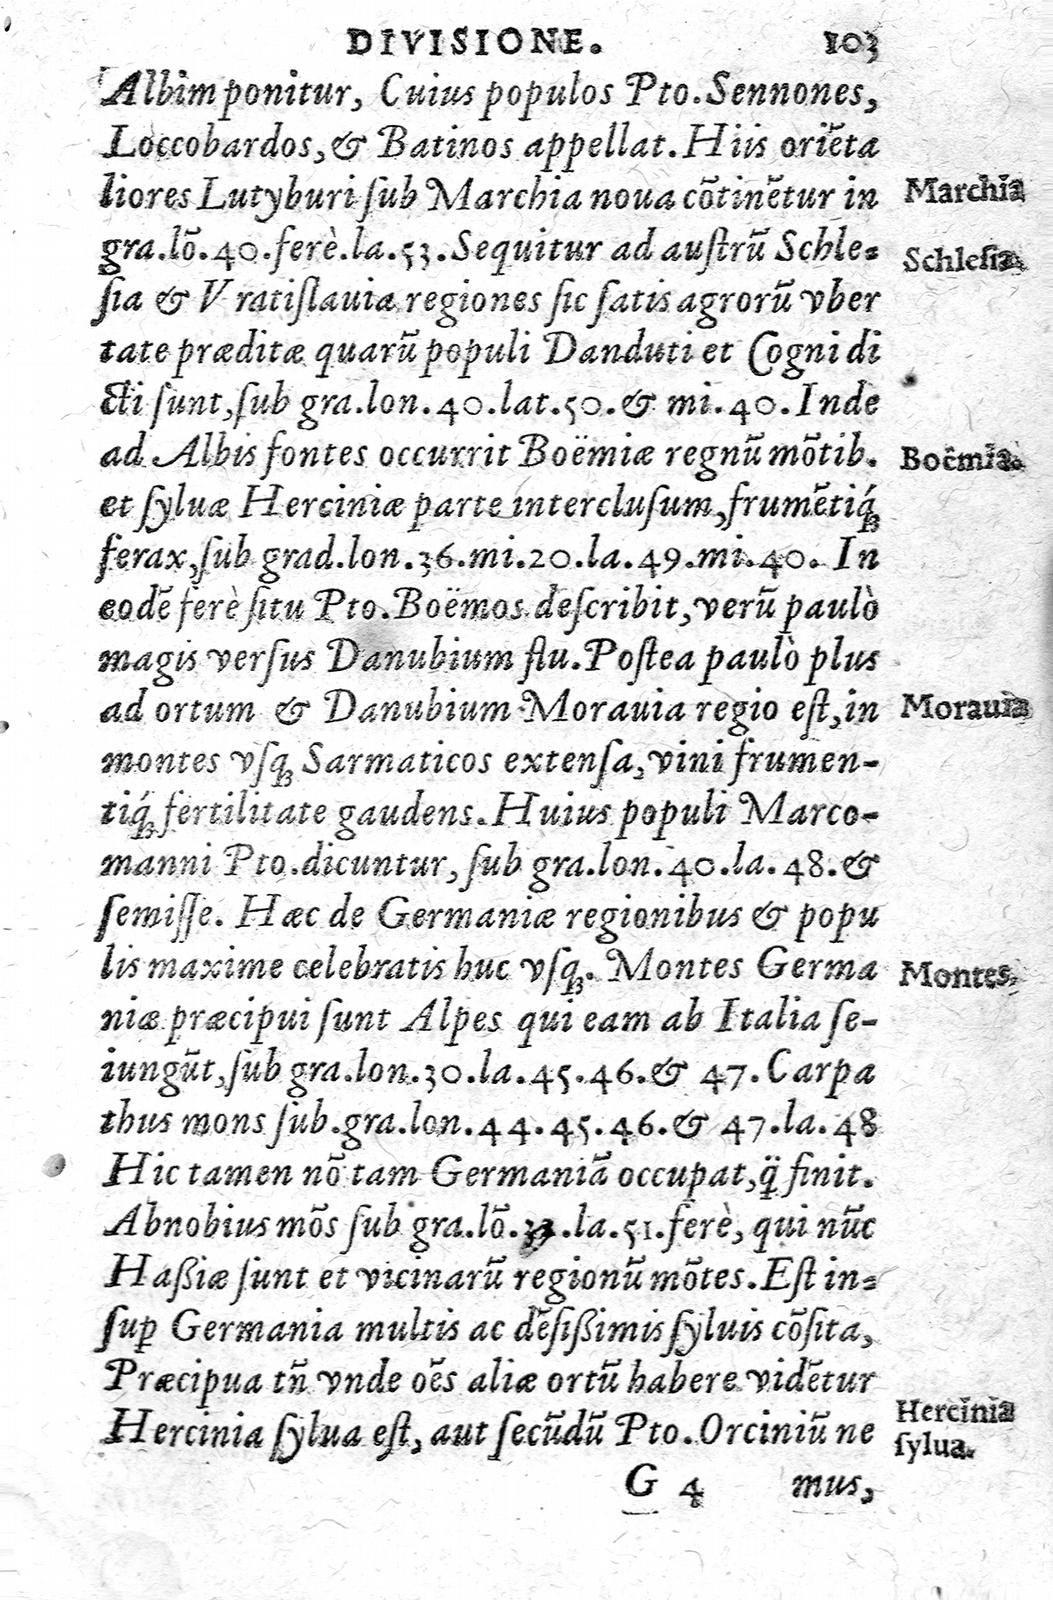 DIVISIONE. 103
Albim ponitur, Cuius populos Pto. Sennones,
Loccobardos, & Batinos appellat. Hiis oriẽta
liores Lutyburi ſub Marchia noua cõtinẽtur in
Marchia
gra. lõ. 40. ferè. la. 53. Sequitur ad auſtrũ Schle=
Schleſia.
ſia & Vratiſlauia regiones ſic ſatis agrorũ vber
tate præditæ quarũ populi Danduti et Cogni di
cti ſunt, ſub gra. lon. 40. lat. 50. & mi. 40. Inde
ad Albis fontes occurrit Boëmiæ regnũ mõtib.
Boëmia.
et ſyluæ Herciniæ parte interclusum, frumẽtiq́;
ferax, ſub grad. lon. 36. mi. 20. la. 49. mi. 40. In
eodẽ ferè ſitu Pto. Boëmos deſcribit, verũ paulò
magis verſus Danubium flu. Poſtea paulò plus
ad ortum & Danubium Morauia regio eſt, in
Morauia
montes vſq; Sarmaticos extenſa, vini frumen-
tiq́; fertilitate gaudens. Huius populi Marco-
manni Pto. dicuntur, ſub gra. lon. 40. la. 48. &
ſemiſſe. Hæc de Germaniæ regionibus & popu
lis maxime celebratis huc vſq;. Montes Germa
Montes.
niæ præcipui ſunt Alpes qui eam ab Italia ſe-
iungũt, ſub gra. lon. 30. la. 45. 46. & 47. Carpa
thus mons ſub. gra. lon. 44. 45. 46. & 47. la. 48
Hic tamen nõ tam Germaniã occupat, q̈ finit.
Abnobius mõs ſub gra. lõ. la. 51. ferè, qui nũc
Haßiæ ſunt et vicinarũ regionũ mõtes. Eſt in=
ſuꝑ Germania multis ac dẽſißimis ſyluis cõſita,
Præcipua tñ vnde oẽs aliæ ortũ habere vidẽtur
Hercinia ſylua eſt, aut ſecũdũ Pto. Orciniũ ne
Hercinia
ſylua.
G 4 mus,